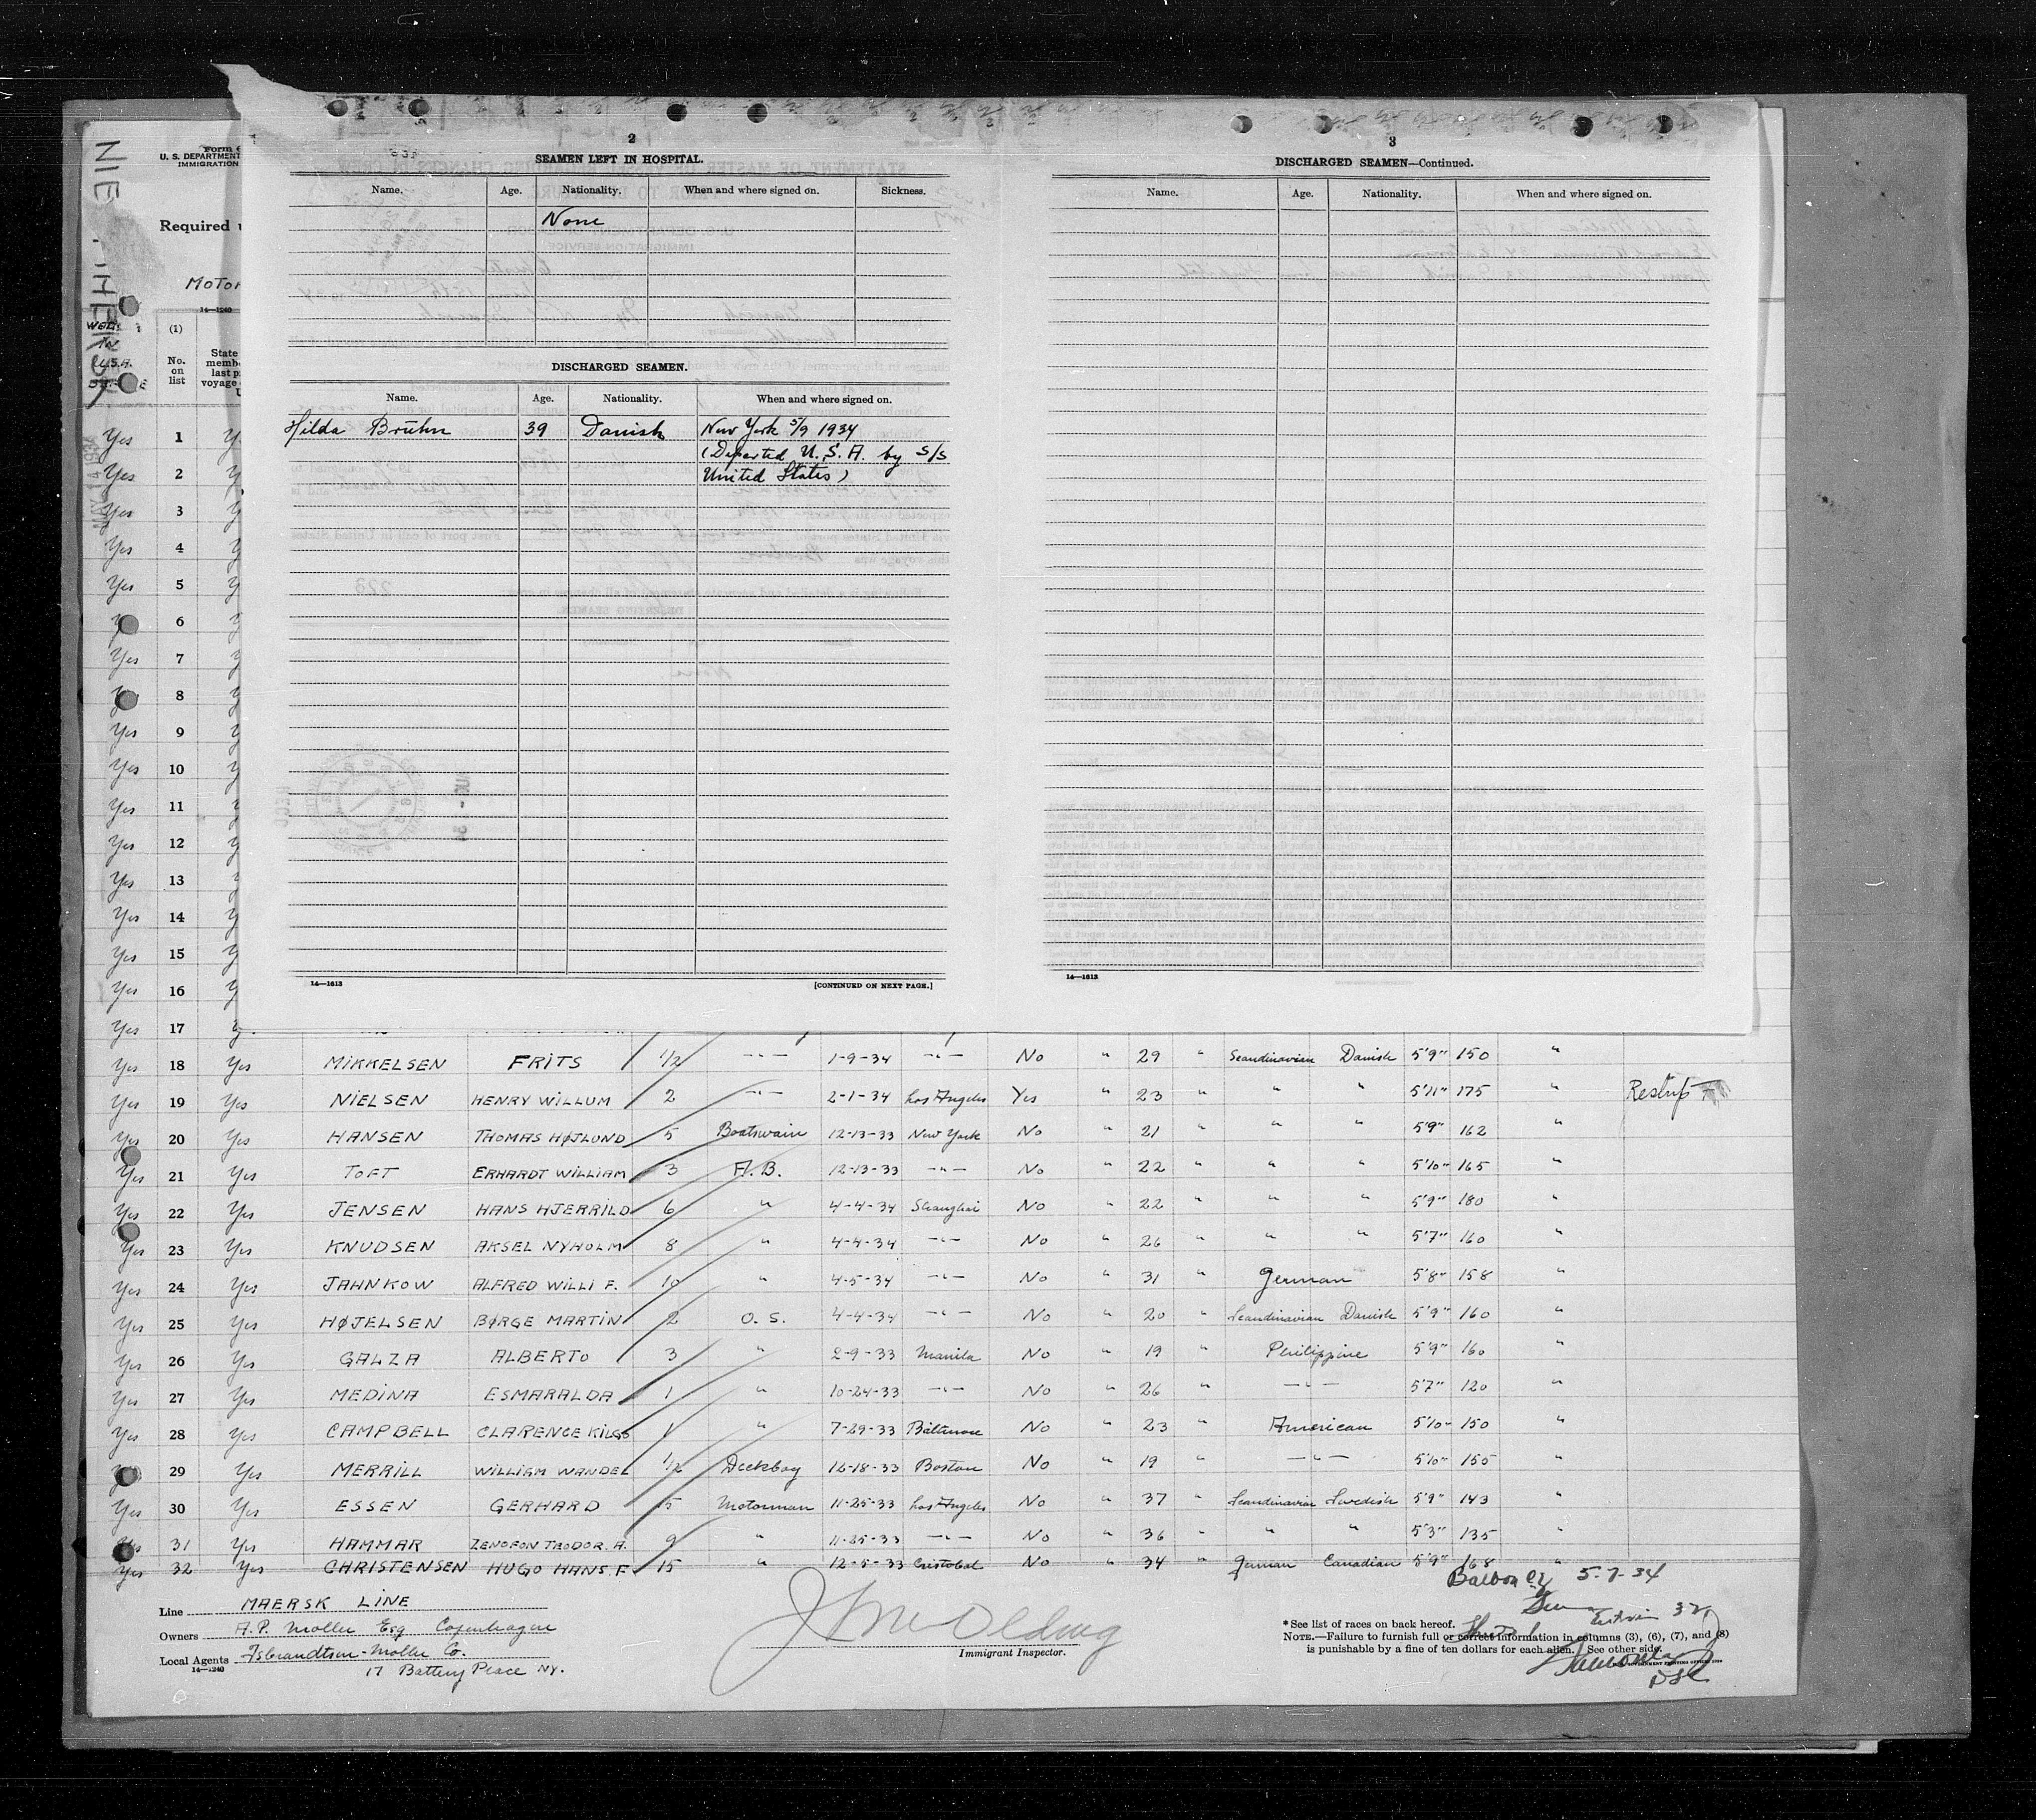 2
SEAMEN LEFT IN HOSPITAL.
Name. Age. Nationality. When and where signed on. Sickness.
None
DISCHARGED SEAMEN.
Name. Age. Nationality. When and where signed on.
Hilda Brühn 39 Danish New York 5/9 1934
(Departed U.S.A. by S/S
United States)
14—1613 [CONTINUED ON NEXT PAGE.]
3
DISCHARGED SEAMEN—Continued.
Name. Age. Nationality. When and where signed on.
14—1613
U. S. DEPARTMENT
IMMIGRATION
Required
MOTOR
14—1240
(1)
No. on list
State
memb
last p
voyage
U.S.A.
MAY 14 1934
Yes 1
Yes 2
Yes 3
Yes 4
Yes 5
6
Yes 7
8
Yes 9
Yes 10
Yes 11
Yes 12
Yes 13
Yes 14
Yes 15
Yes 16
Yes 17
Yes 18 Yes MIKKELSEN FRITS 1/2 —"— 1-9-34 —"— No " 29 " Scandinavian Danish 5'9" 150 "
Yes 19 Yes NIELSEN HENRY WILLUM 2 —"— 2-1-34 Los Angeles Yes " 23 " " " 5'11" 175 "
Yes 20 Yes HANSEN THOMAS HØJLUND 5 Boatswain 12-13-33 New York No " 21 " " " 5'9" 162 "
Yes 21 Yes TOFT ERHARDT WILLIAM 3 A.B. 12-13-33 —"— No " 22 " " " 5'10" 165 "
Yes 22 Yes JENSEN HANS HJERRILD 6 " 4-4-34 Shanghai No " 22 " " " 5'9" 180 "
Yes 23 Yes KNUDSEN AKSEL NYHOLM 8 " 4-4-34 —"— No " 26 " " " 5'7" 160 "
Yes 24 Yes JAHNKOW ALFRED WILLI F. 10 " 4-5-34 —"— No " 31 " German 5'8" 158 "
Yes 25 Yes HØJELSEN BØRGE MARTIN 2 O.S. 4-4-34 —"— No " 20 " Scandinavian Danish 5'9" 160 "
Yes 26 Yes GALZA ALBERTO 3 " 2-9-33 Manila No " 19 " Philippine 5'9" 160 "
Yes 27 Yes MEDINA ESMARALDA 1 " 10-24-33 —"— No " 26 " —"— 5'7" 120 "
Yes 28 Yes CAMPBELL CLARENCE KILGO 1 " 7-29-33 Baltimore No " 23 " American 5'10" 150 "
Yes 29 Yes MERRILL WILLIAM WANDEL 1/2 Deckboy 12-18-33 Boston No " 19 " —"— 5'10" 155 "
Yes 30 Yes ESSEN GERHARD 15 Motorman 11-25-33 Los Angeles No " 37 " Scandinavian Swedish 5'9" 143 "
Yes 31 Yes HAMMAR ZENOFON TEODOR. A. 9 " 11-25-33 —"— No " 36 " " " 5'3" 135 "
Yes 32 Yes CHRISTENSEN HUGO HANS. F. 15 " 12-5-33 Cristobal No " 34 " German Canadian 5'9" 168 "
Balboa CZ 5-7-34
Line MAERSK LINE
Owners A.P. Moller Esq Copenhagen
Local Agents Isbrandtsen-Moller Co.
17 Battery Place NY.
14—1240
Immigrant Inspector.
* See list of races on back hereof.
NOTE.—Failure to furnish full or correct information in columns (3), (6), (7), and (8)
is punishable by a fine of ten dollars for each alien. See other side.